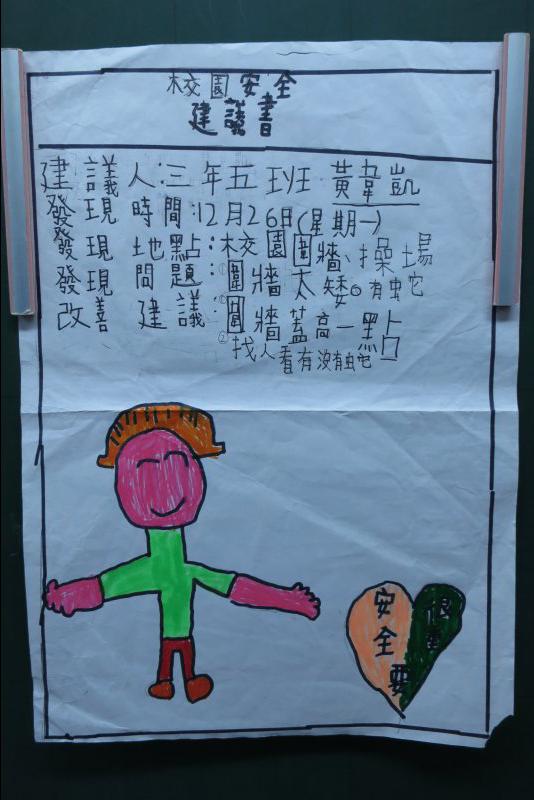 校園安全
建議書
建議人:三年五班 黃韋凱
發現時間:12月26日(星期一)
發現地點:校園圍牆、操場
發現問題:①圍牆太矮。有蛇
改善建議:圍牆蓋高一點
②找人看有沒有蛇
安全要
很重